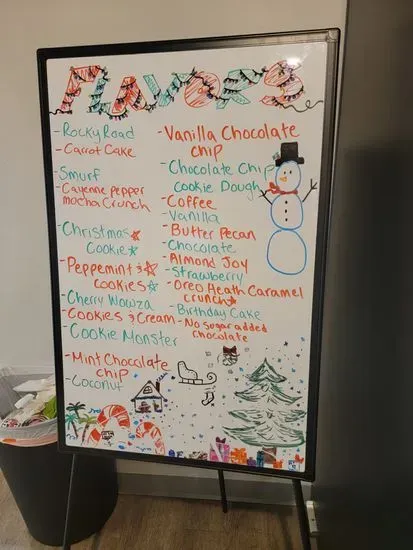 FLAVORS
-Rocky Road
-Carrot Cake
-Smurf
-Cayenne pepper
mocha Crunch
-Christmas
Cookie
-Peppemint &
cookies
-Cherry Wowza
-Cookies & Cream
-Cookie Monster
-Mint Chocolate
chip
-Coconut
-Vanilla Chocolate
chip
-Chocolate Chip
Cookie Dough
-Coffee
-Vanilla
-Butter Pecan
-Chocolate
-Almond Joy
-Strawberry
-Oreo Heath Caramel
crunch
-Birthday Cake
-No sugar added
chocolate